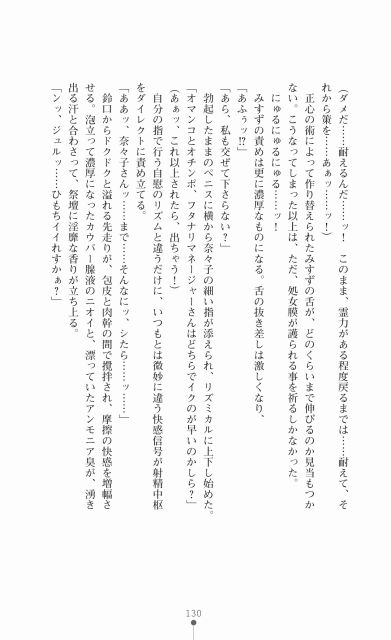 (ダメだ……耐えるんだ……ッ！　このまま、霊力がある程度戻るまでは……耐えて、そ
れから策を……あぁッ……ッ！)
　正心の術によって作り替えられたみすずの舌が、どのくらいまで伸びるのか見当もつか
ない。こうなってしまった以上は、ただ、処女膜が護られる事を祈るしかなかった。
　にゅるにゅるにゅる……ッ！
　みすずの責めは更に濃厚なものになる。舌の抜き差しは激しくなり、
「あふぅッ!?」
「あら、私も交ぜて下さらない？」
　勃起したままのペニスに横から奈々子の細い指が添えられ、リズミカルに上下し始めた。
「オマンコとオチンポ、フタナリマネージャーさんはどちらでイクのが早いのかしら？」
(あぁッ、これ以上されたら、出ちゃう！)
　自分の指で行う自慰のリズムと違うだけに、いつもとは微妙に違う快感信号が射精中枢
をダイレクトに責め立てる。
「ああッ、奈々子さんッ……まで……そんなにッ、シたら……ッ……」
　鈴口からドクドクと溢れる先走りが、包皮と肉幹の間で攪拌され、摩擦の快感を増幅さ
せる。泡立って濃厚になったカウパー腺液のニオイと、漂っていたアンモニア臭が、湧き
出る汗と合わさって、祭壇に淫靡な香りが立ち上る。
「ンッ、ジュルッ……ひもちイイれすかぁ？」
130